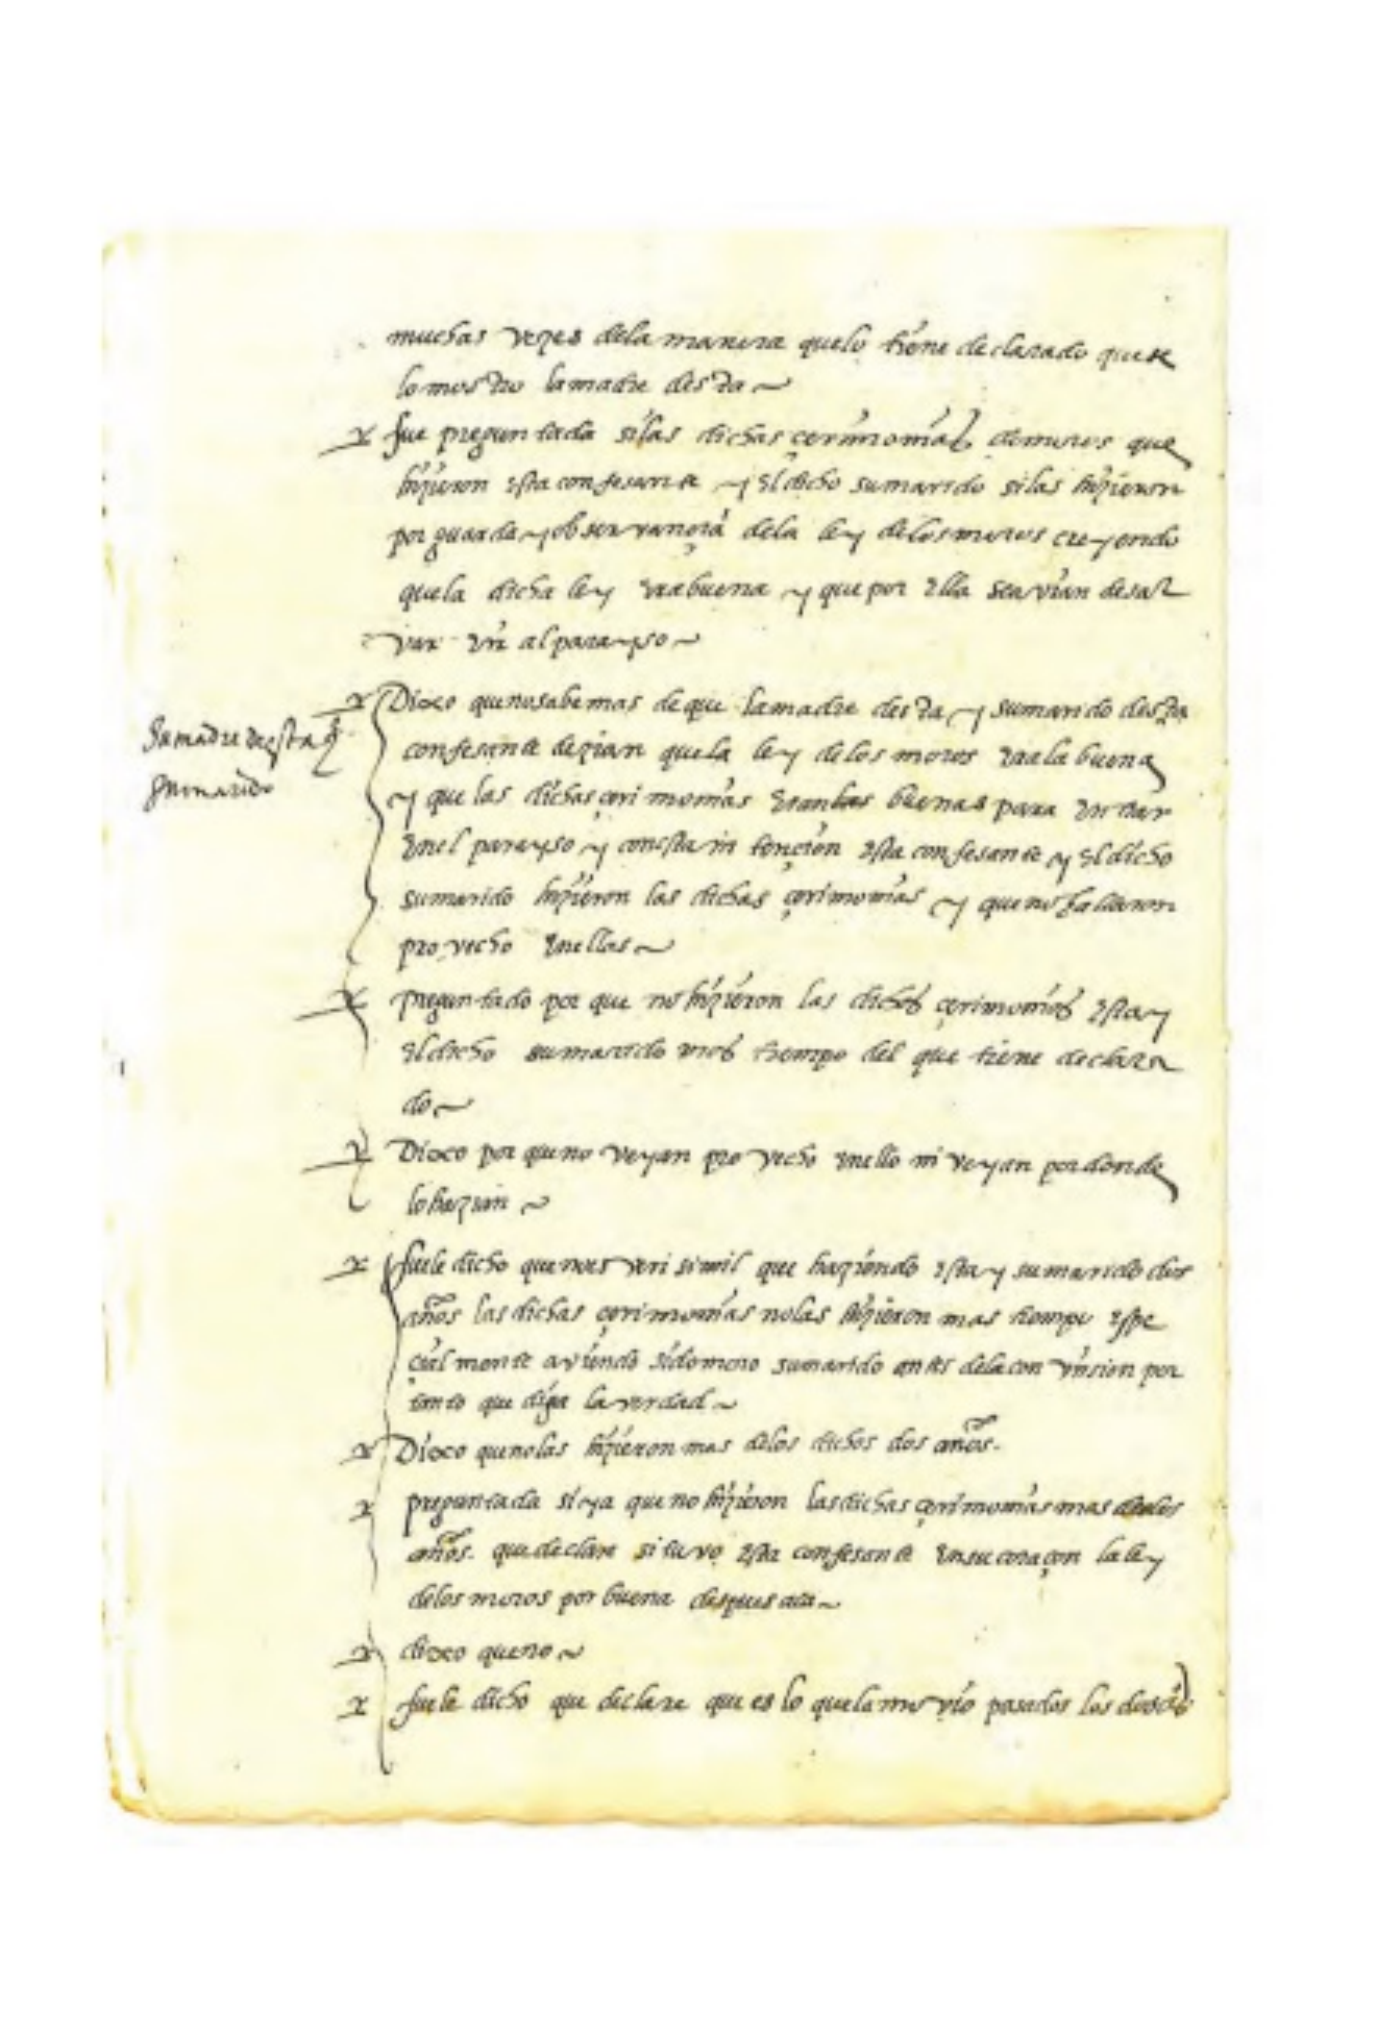 muchas vezes dela manera quelo tiene declarado que se
lo mostro lamadre desta
fue preguntada silas dichas çerimonias demoros que
hizieron esta confesante y El dicho sumarido silas hizieron
por guarda y observançia dela ley delos moros creyendo
quela dicha ley era buena y que por Ella seavian desal
var E yr al parayso
Dixo quenosabe mas de que lamadre desta y sumarido desta
la madre desta y
su marido
confesante dezian quela ley delos moros Era la buena
y que las dichas çerimonias Eran las buenas para Entrar
Enel parayso y conesta intençion Esta confesante y El dicho
sumarido hizieron las dichas çerimonias y que no hallaron
provecho Enellas
preguntado por que no hizieron las dichas çerimonias Esta y
El dicho sumarido mas tiempo del que tiene declara
do
Dixo por queno veyan provecho Enello ni veyan por donde
lo hazian
fuele dicho quenoes verisimil que haziendo Esta y sumarido dos
años las dichas çerimonias nolas hizieron mas tiempo Espe
çialmente aviendo sido moro sumarido antes dela conversion por
tanto que diga la verdad
Dixo quenolas hizieron mas delos dichos dos años.
preguntada si ya que no hizieron lasdichas çerimonias mas delos
años. que declare si tuvo Esta confesante Ensu coraçon la ley
delos moros por buena despues aca
dixo queno
fuele dicho que declare que es lo quela movio pasados los dos